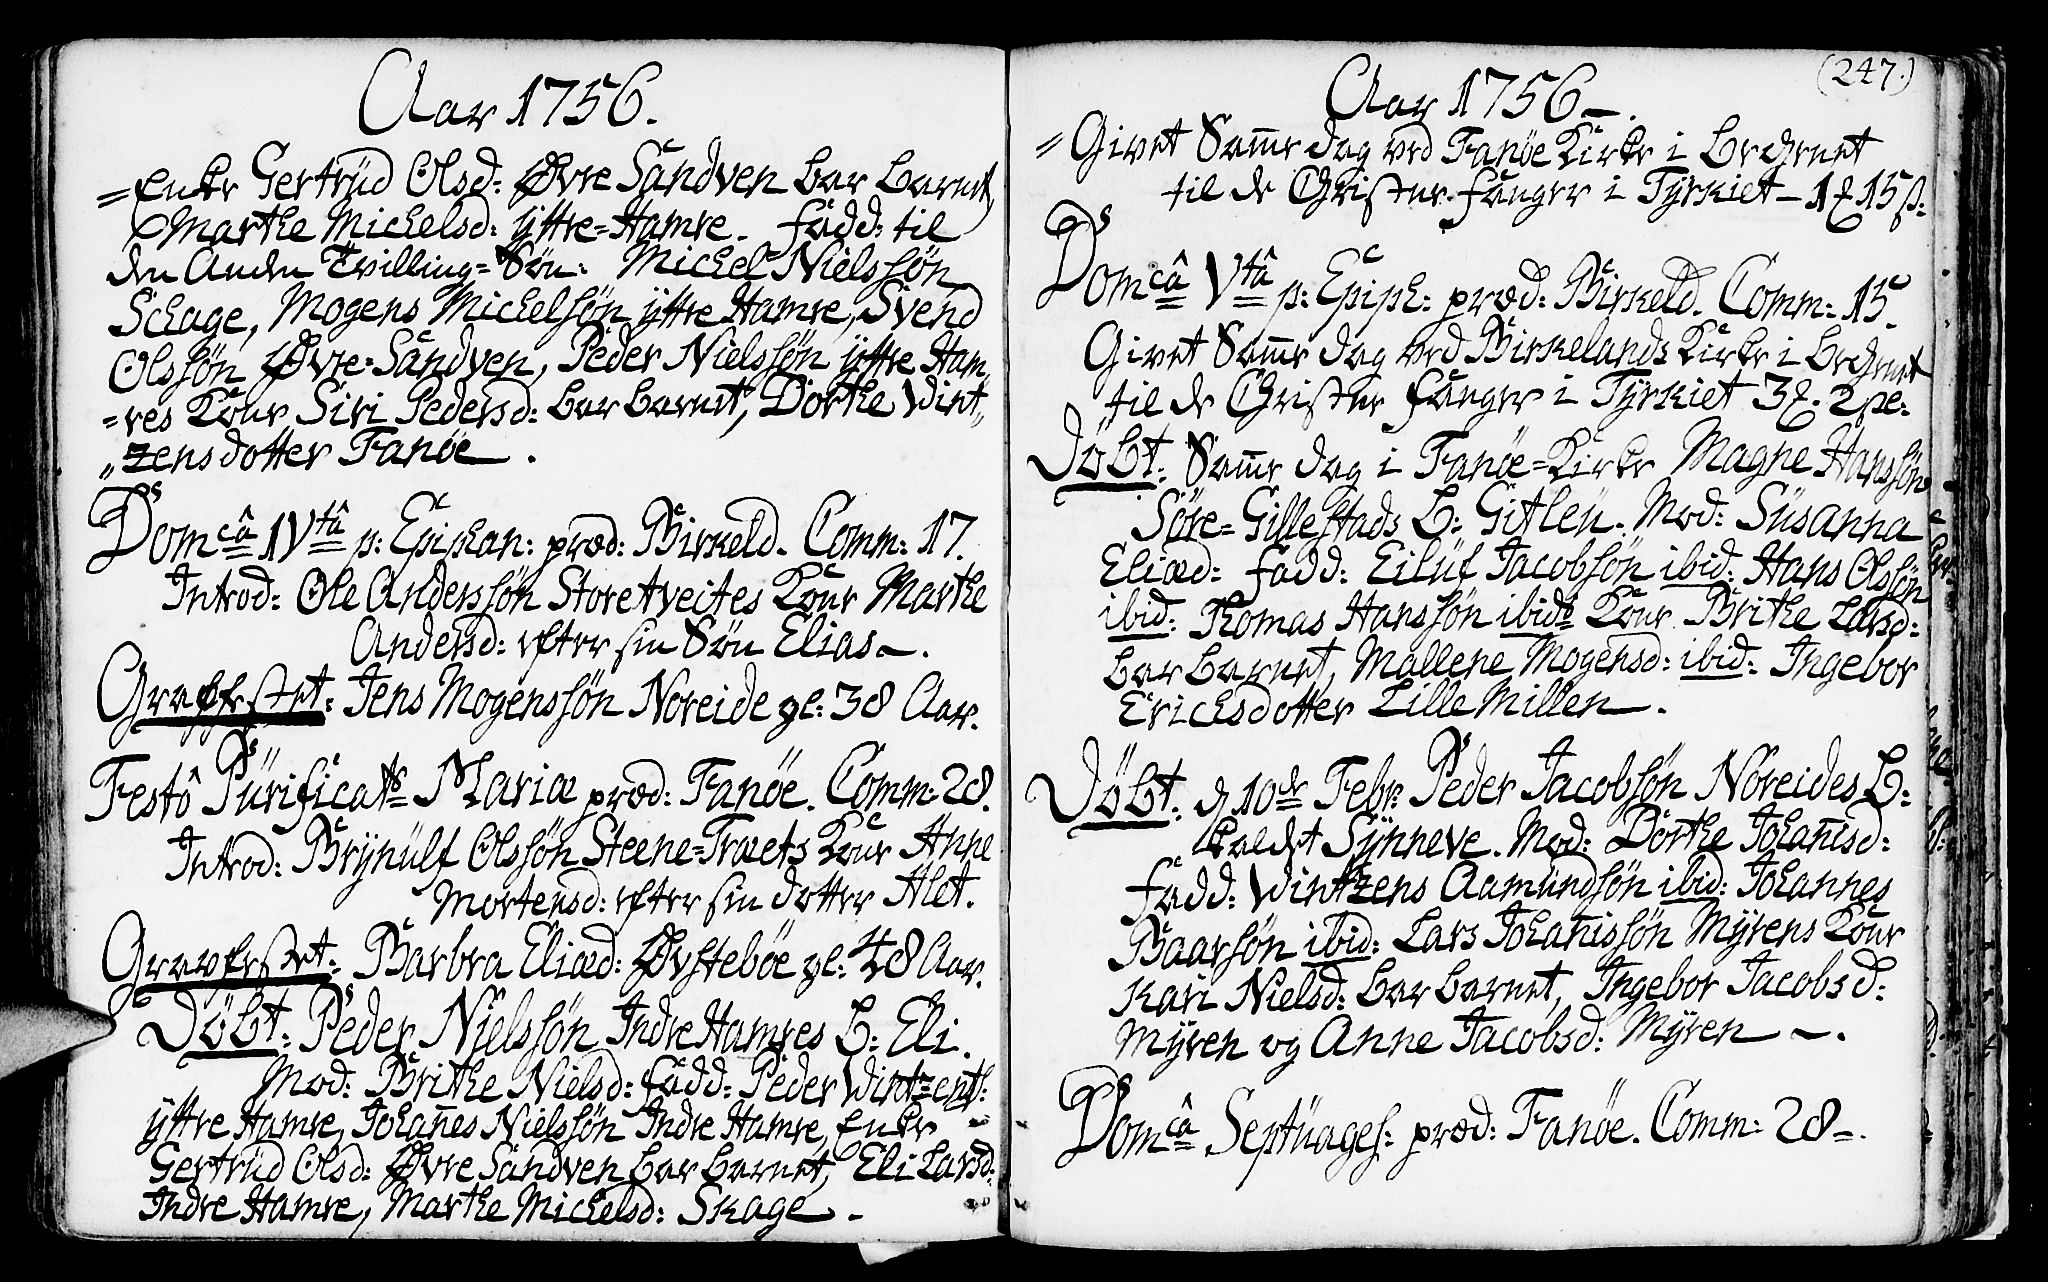 Aar 1756.
= Enke Gertrüd Olsd: Øvre Sandven bar barnet,
Marthe Michelsd: yttre-Hamre. Fadd: til
den Anden Tvilling-Søn: Michel Nielssøn
Schage, Mogens Michelssøn yttre Hamre, Svend
Olssøn Øvre-Sandven, Peder Nielssøn yttre Ham„
=res Kone Siri Pedersd: bar barnet, Dorthe Vint„
„zensdotter Fanöe.
Domcâ IVtâ p: Epiphan: præd: Birkeld. Comm: 17.
Introd: Ole Anderssøn Storetveites Kone Marthe
Andersd: efter sin Søn Elias.
Græffestet: Jens Mogenssøn Noreide gl: 38 Aar.
Festô Pürificats Mariæ præd: Fanöe. Comm: 28.
Introd: Brÿnülf Olssøn Steene-Træets Kone Anne
Mortensd: efter sin dotter Alet.
Græffestet: Barbra Eliæd: Øvstebøe gl: 48 Aar.
Döbt: Peder Nielssøn Indre Hamres B: Eli.
Mod: Brithe Nielsd: Fadd: Peder Vintzents:
yttre Hamre, Johanes Nielssøn Indre Hamre, Enke
Gertrüd Olsd: Øvre Sandven bar barnet, Eli Larsd:
Indre Hamre, Marthe Michelsd: Skage.
(247.)
Aar 1756.
= Givet Same dag ved Fanöe Kirke i Beckenet
til de Christne fanger i Tÿrkiet - 1 15 ß:
Domcâ Vtâ p: Epiph: præd: Birkeld. Comm: 15.
Givet Same dag ved Birkelands Kirke i beckenet
til de Christne fanger i Tÿrkiet 3 2
Döbt: Same dag i Fanöe-Kirke Magne Hanssøn
Søre-Gillestads B: Gitleü. Mod: Süsanna
Eliæd: Fadd: Eilüf Jacobsøn ibid: Hans Olssøn
ibid: Thomas Hanssøn ibid: Kone Brithe Larsd:
bar barnet, Mallene Mogensd: ibid: Ingebor
Ericksdotter Lille Millen.
Döbt: d 10de Febr: Peder Jacobsøn Noreides B:
kaldet Sÿnneve. Mod: Dorthe Johanisd:
Fadd: Vintzens Aamündsøn ibid: Johannes
Baarsøn ibid: Lars Johanissøn Mÿrens Kone
Kari Nielsd: bar barnet, Ingebor Jacobsd:
Mÿren og Anne Jacobsd: Mÿren.
Domcâ Septüages: præd: Fanöe. Comm: 28.